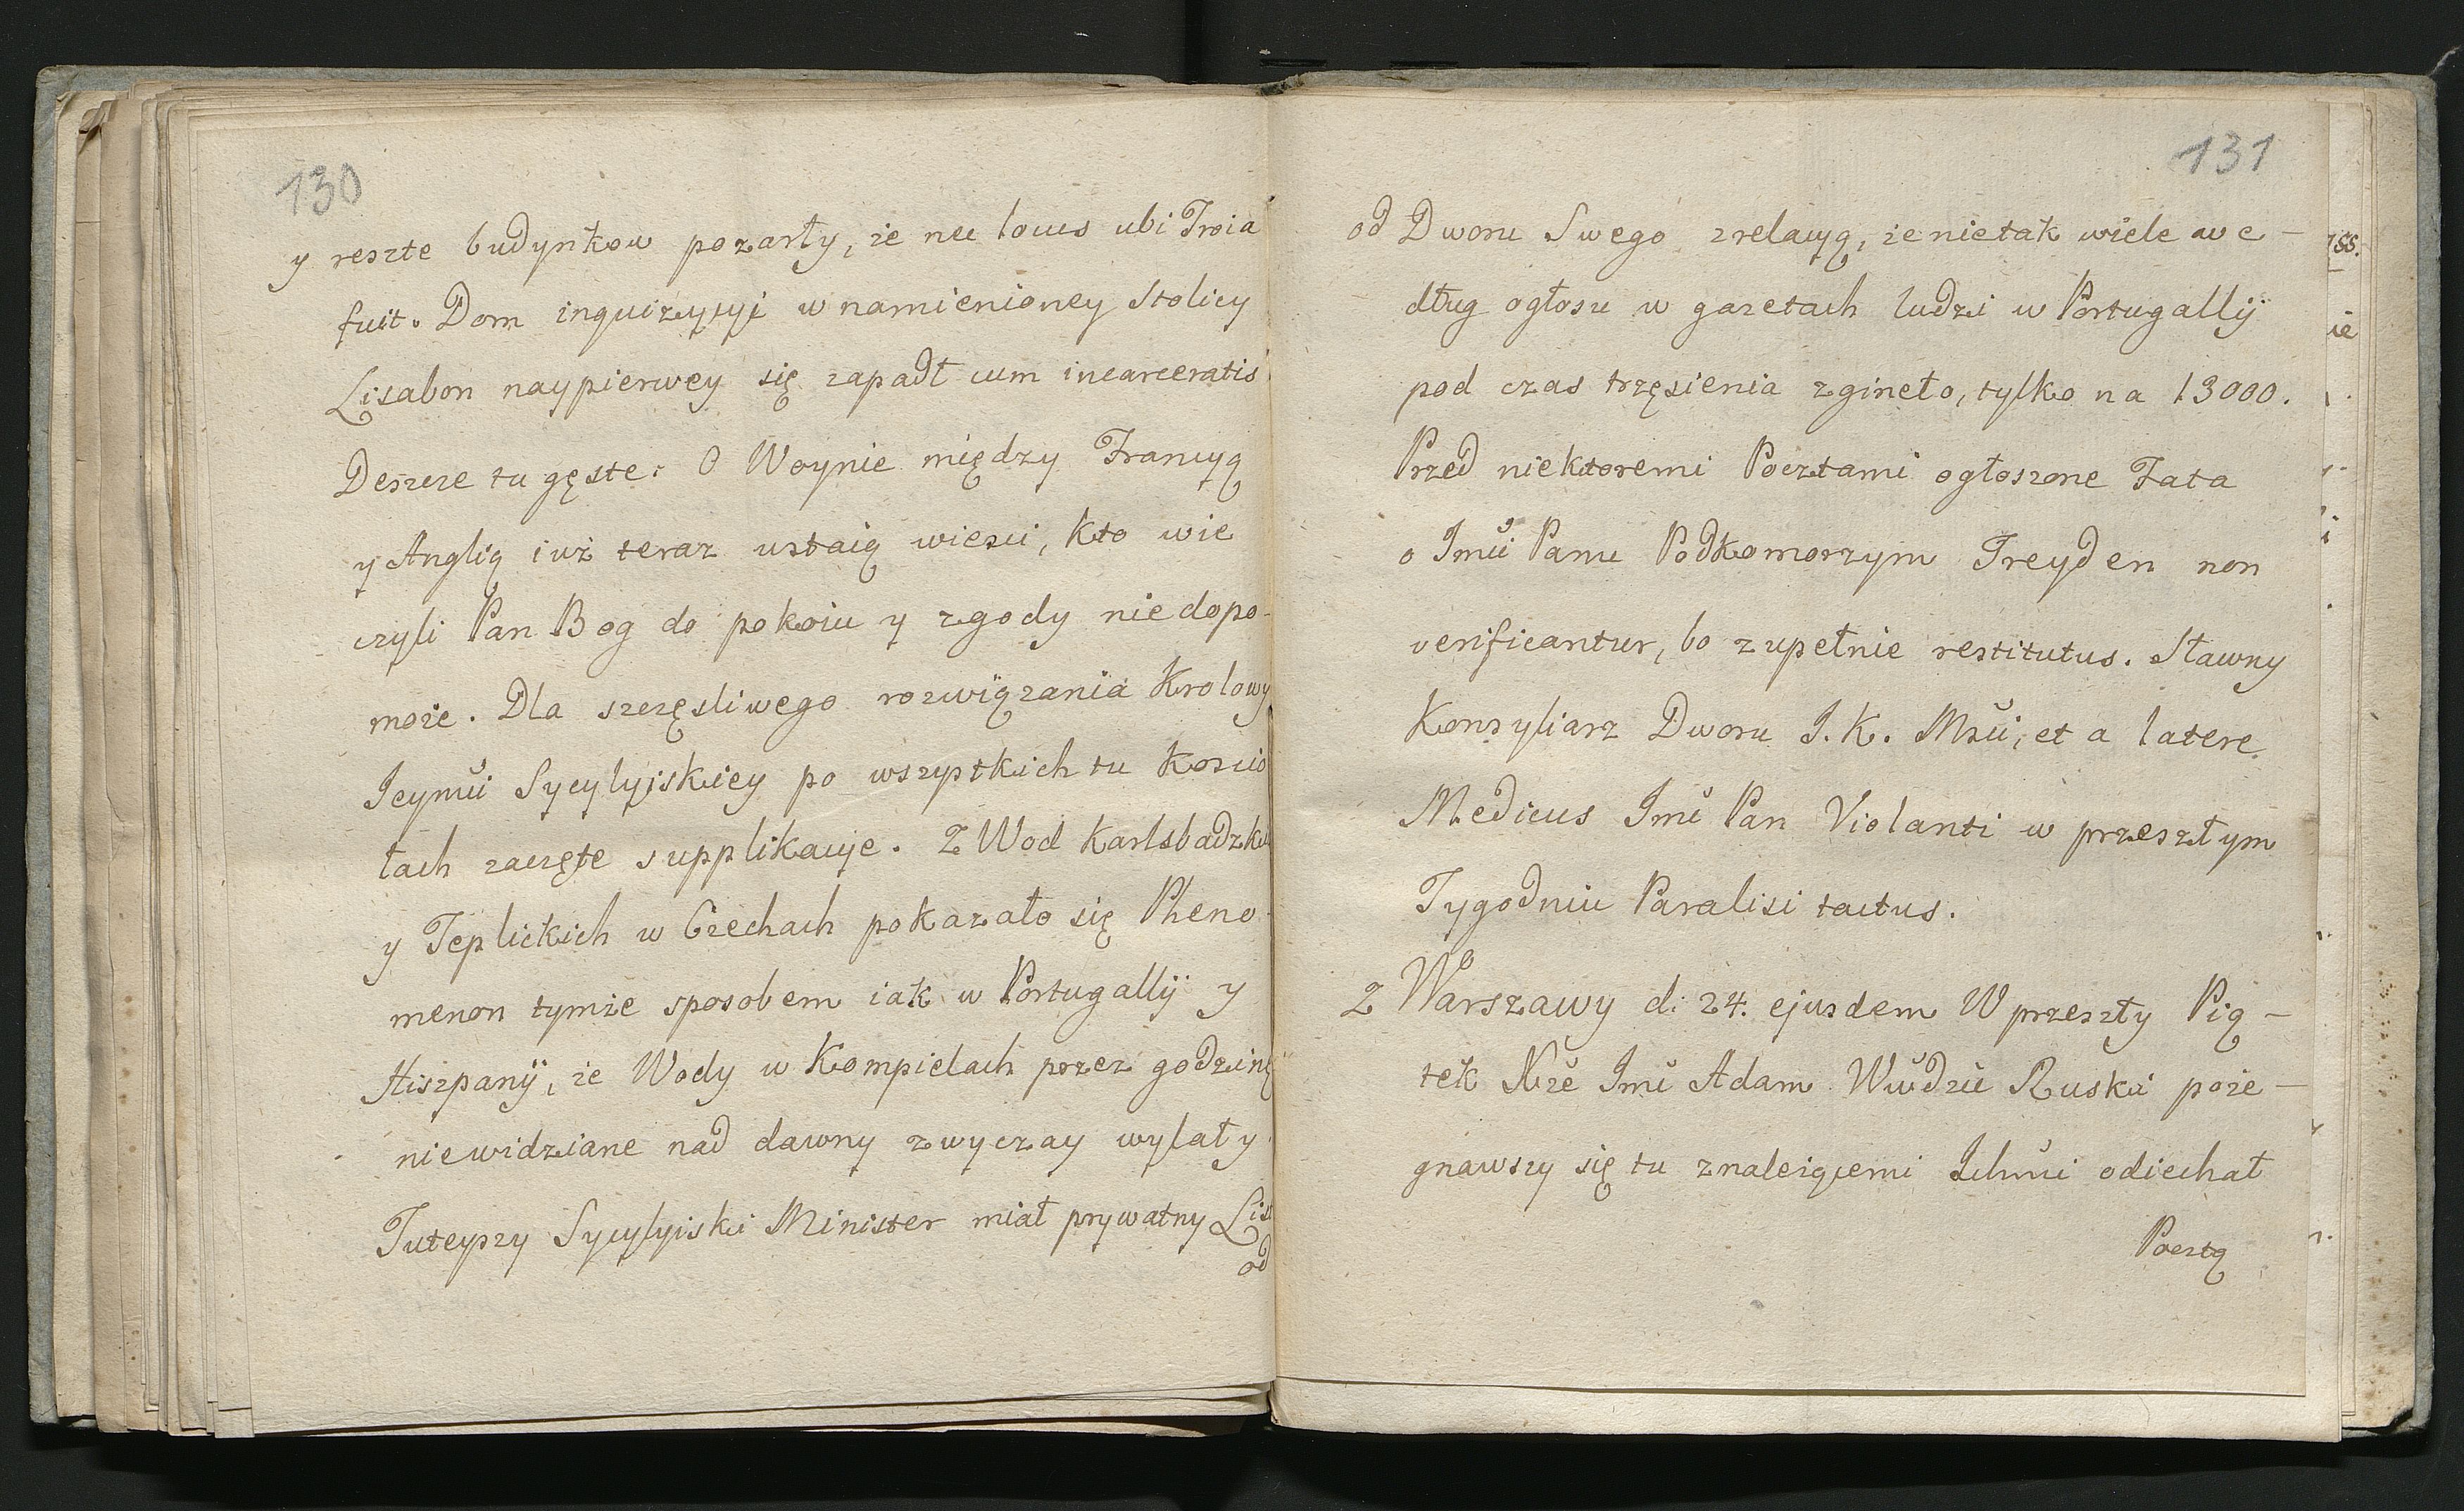 130
y reszte budynkow pozarły, że nec locus ubi Troia
fuit. Dom inquizycyi w namienioney Stolicy
Lisabon naypierwey się zapadł cum incarceratis
Deszcze tu gęste. O Woynie między Francyą
y Anglią iuż teraz ustaią wiesci, kto wie
czyli Pan Bog do pokoiu y zgody niedopo-
może. Dla szczęsliwego rozwiązania Krolowy
Jeymci Sycylyjskiey po wszystkich tu Koscio
łach zaczęte supplikacye. Z Wod Karlsbadzki
y Teplickich w Czechach pokazało się Pheno-
menon tymże sposobem iak w Portugallÿ y
Hiszpanÿ, że Wody w Kompielach przez godzinę
niewidziane nad dawny zwyczay wylały.
Tuteyszy Sycylyiski Minister miał prywatny List
od
131
od Dworu Swego z relacyą, że nietak wiele we-
dług ogłosu w gazetach ludzi w Portugallÿ
pod czas trzęsienia zgineło, tylko na 13000.
Przed niektoremi Pocztami ogłoszone Fata
o Jmći Panu Podkomorzym Treyden non
verificantur, bo zupełnie restitutus. Sławny
Konsyliarz Dworu J. K. Mści, et a latere
Medicus Jmć Pan Violanti w przeszłym
Tygodniu Paralisi tactus.
Z Warszawy d: 24. ejusdem W przeszły Pią-
tek Xże Jmć Adam Wwdzic Ruski poże-
gnawszy się tu z należącemi Ichmći odiechał
Pocztą